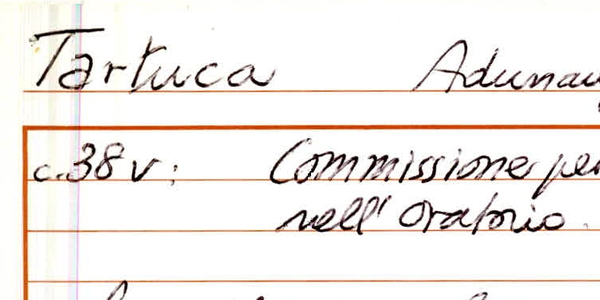 Tartuca Adunan
c.38v: Commissione per
nell'Oratorio.